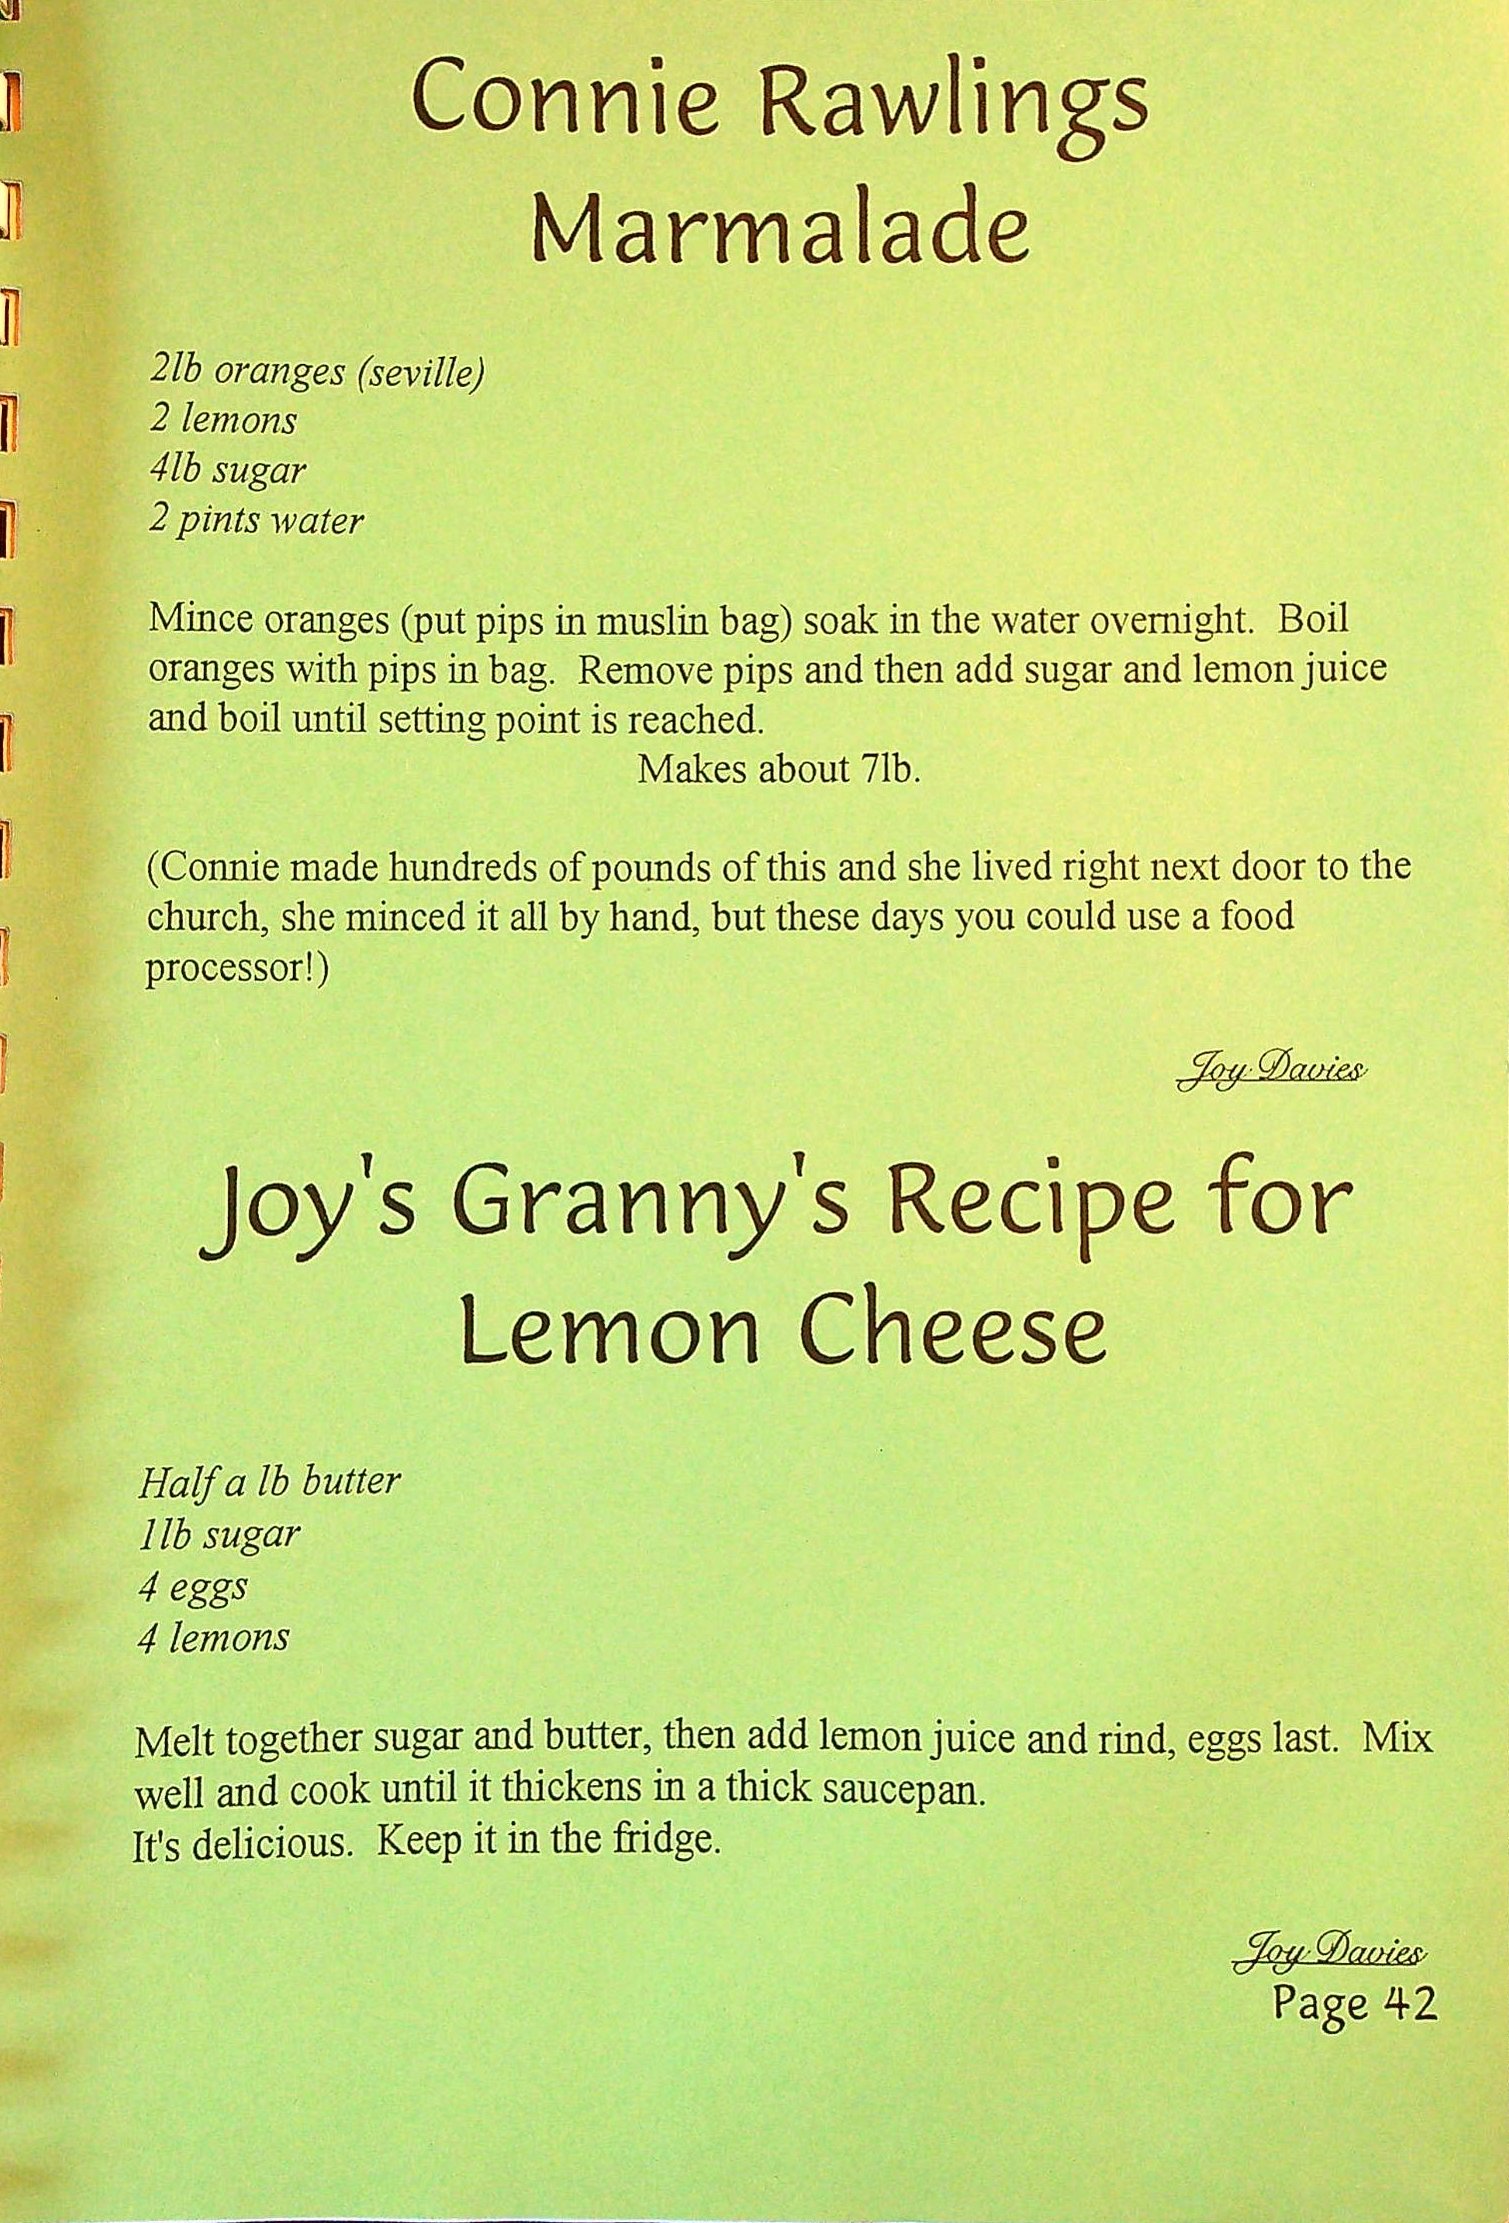 Connie Rawlings
Marmalade
2lb oranges (seville)
2 lemons
4lb sugar
2 pints water
Mince oranges (put pips in muslin bag) soak in the water overnight.  Boil
oranges with pips in bag.  Remove pips and then add sugar and lemon juice
and boil until setting point is reached.
Makes about 7lb.
(Connie made hundreds of pounds of this and she lived right next door to the
church, she minced it all by hand, but these days you could use a food
processor!)
Joy Davies
Joy's Granny's Recipe for
Lemon Cheese
Half a lb butter
1lb sugar
4 eggs
4 lemons
Melt together sugar and butter, then add lemon juice and rind, eggs last.  Mix
well and cook until it thickens in a thick saucepan.
It's delicious.  Keep it in the fridge.
Joy Davies
Page 42